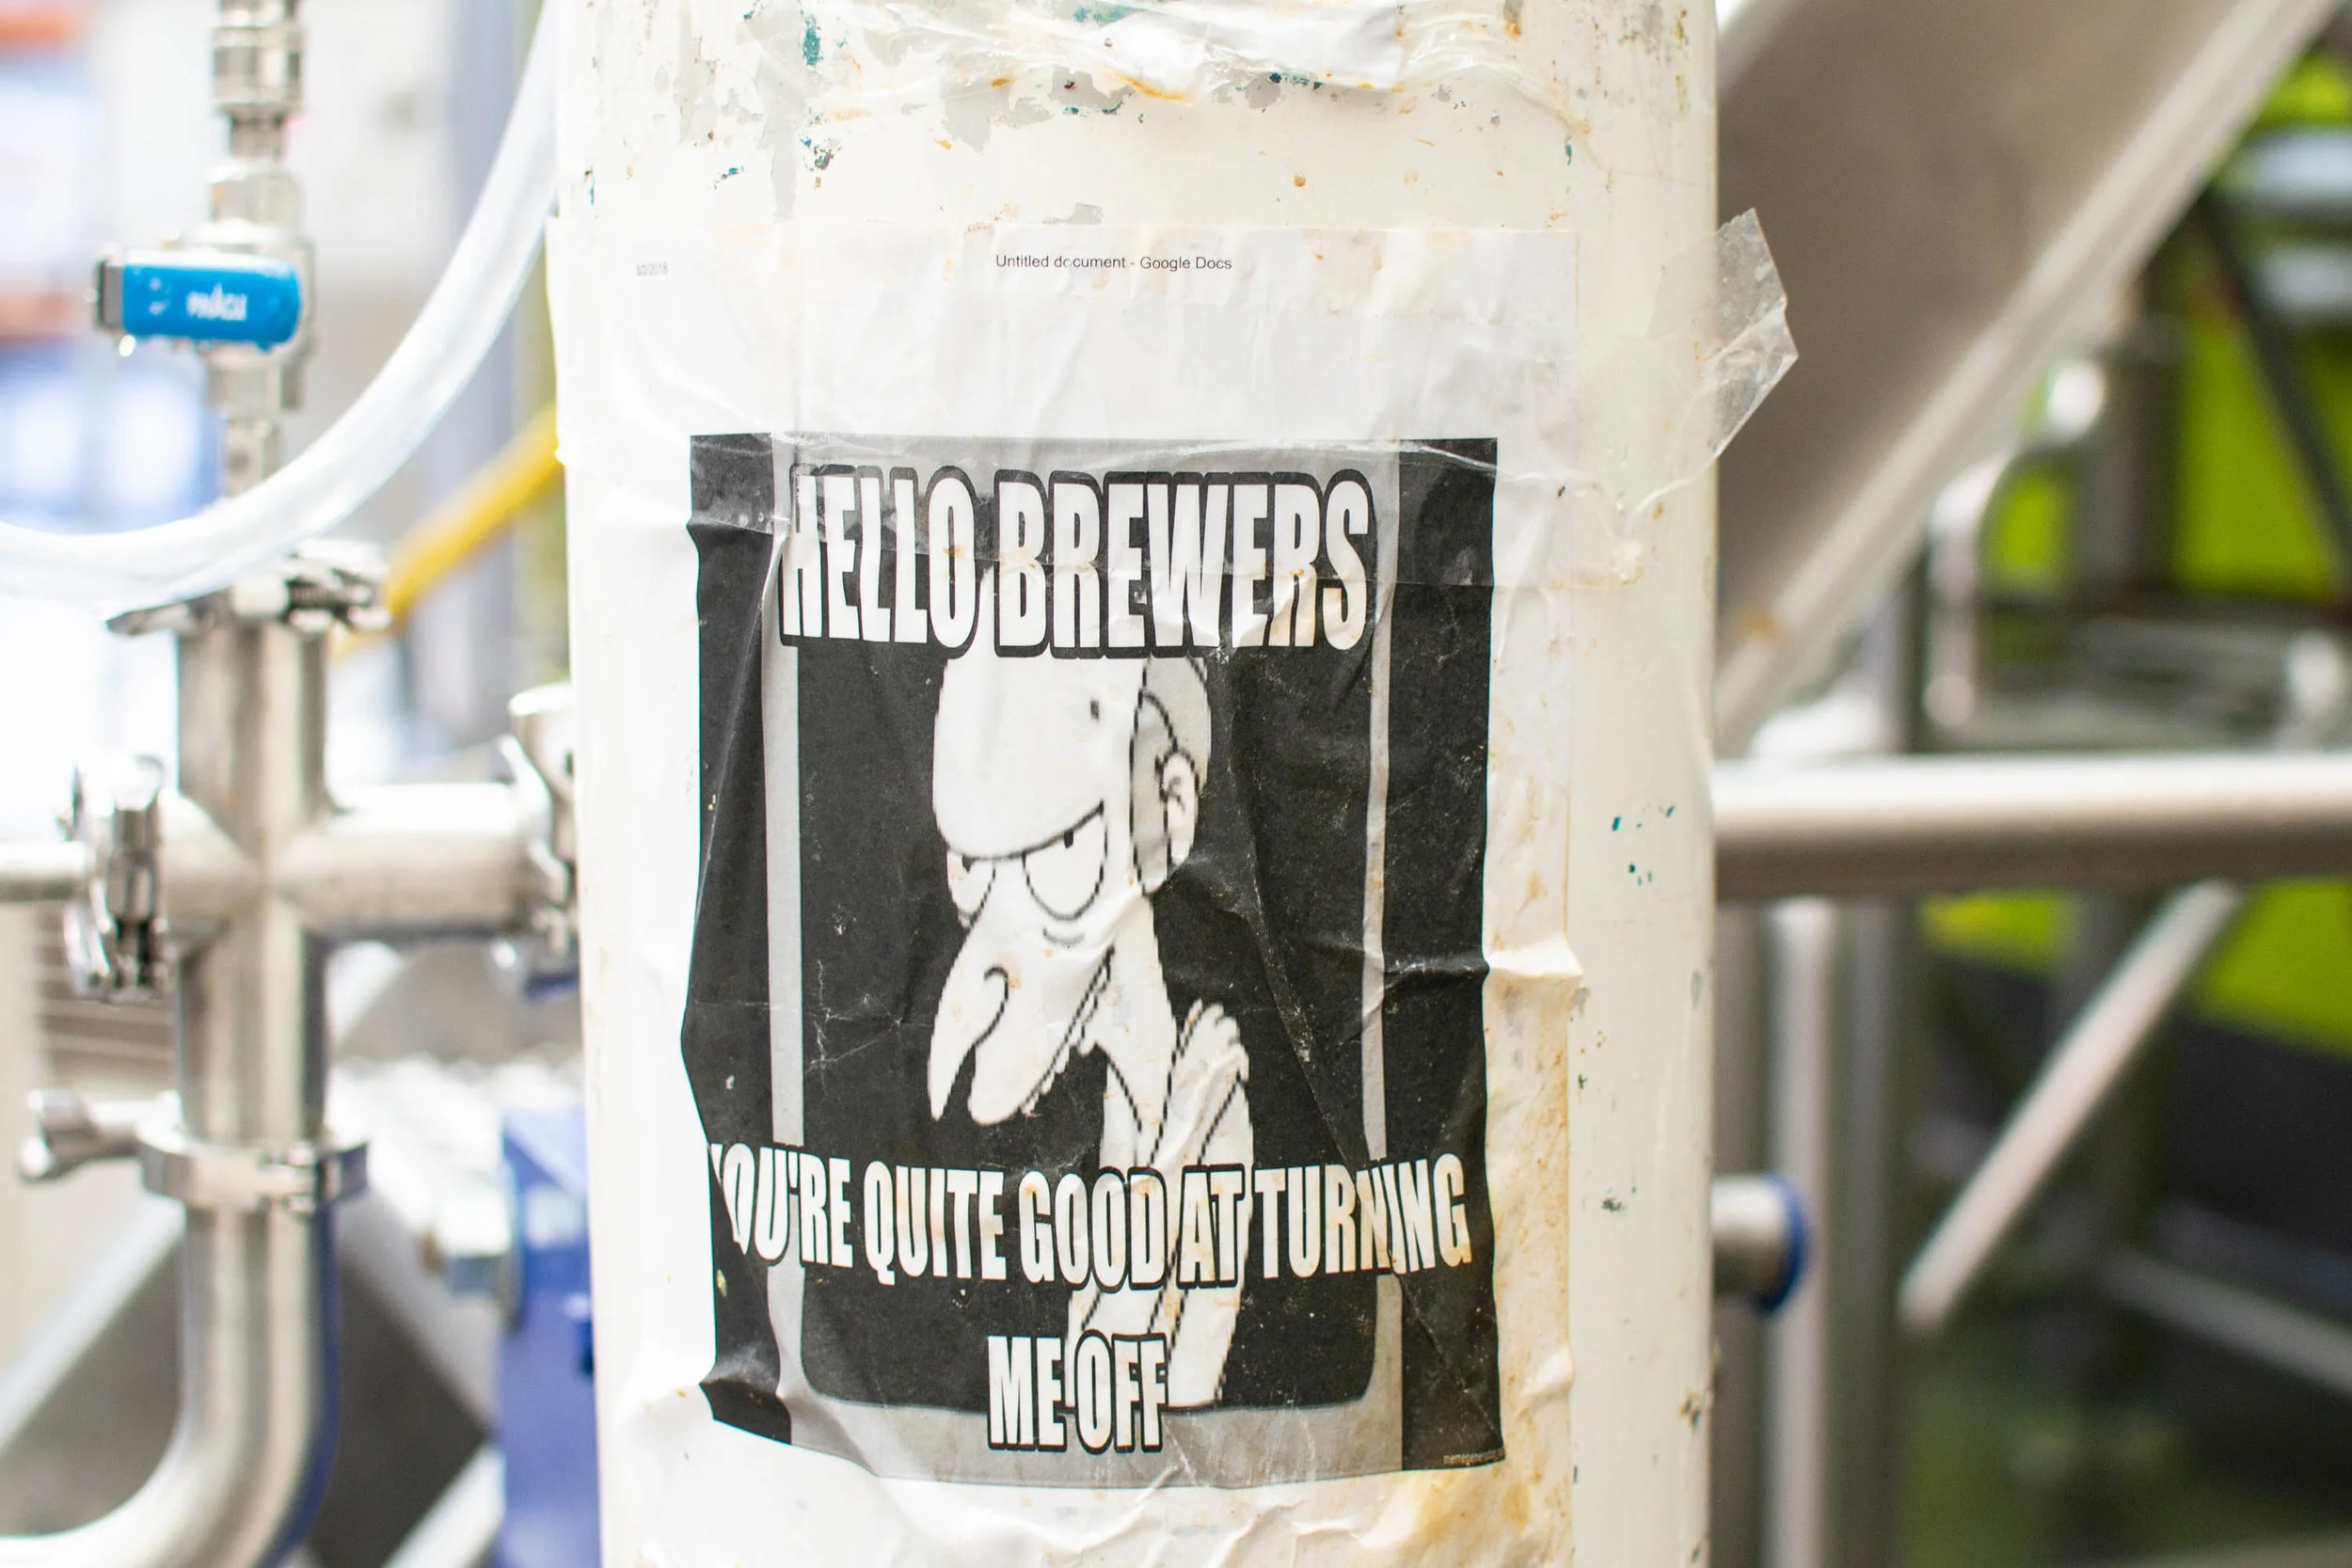 5/2/2016
Untitled document - Google Docs
HELLO BREWERS
YOU'RE QUITE GOOD AT TURNING
ME OFF